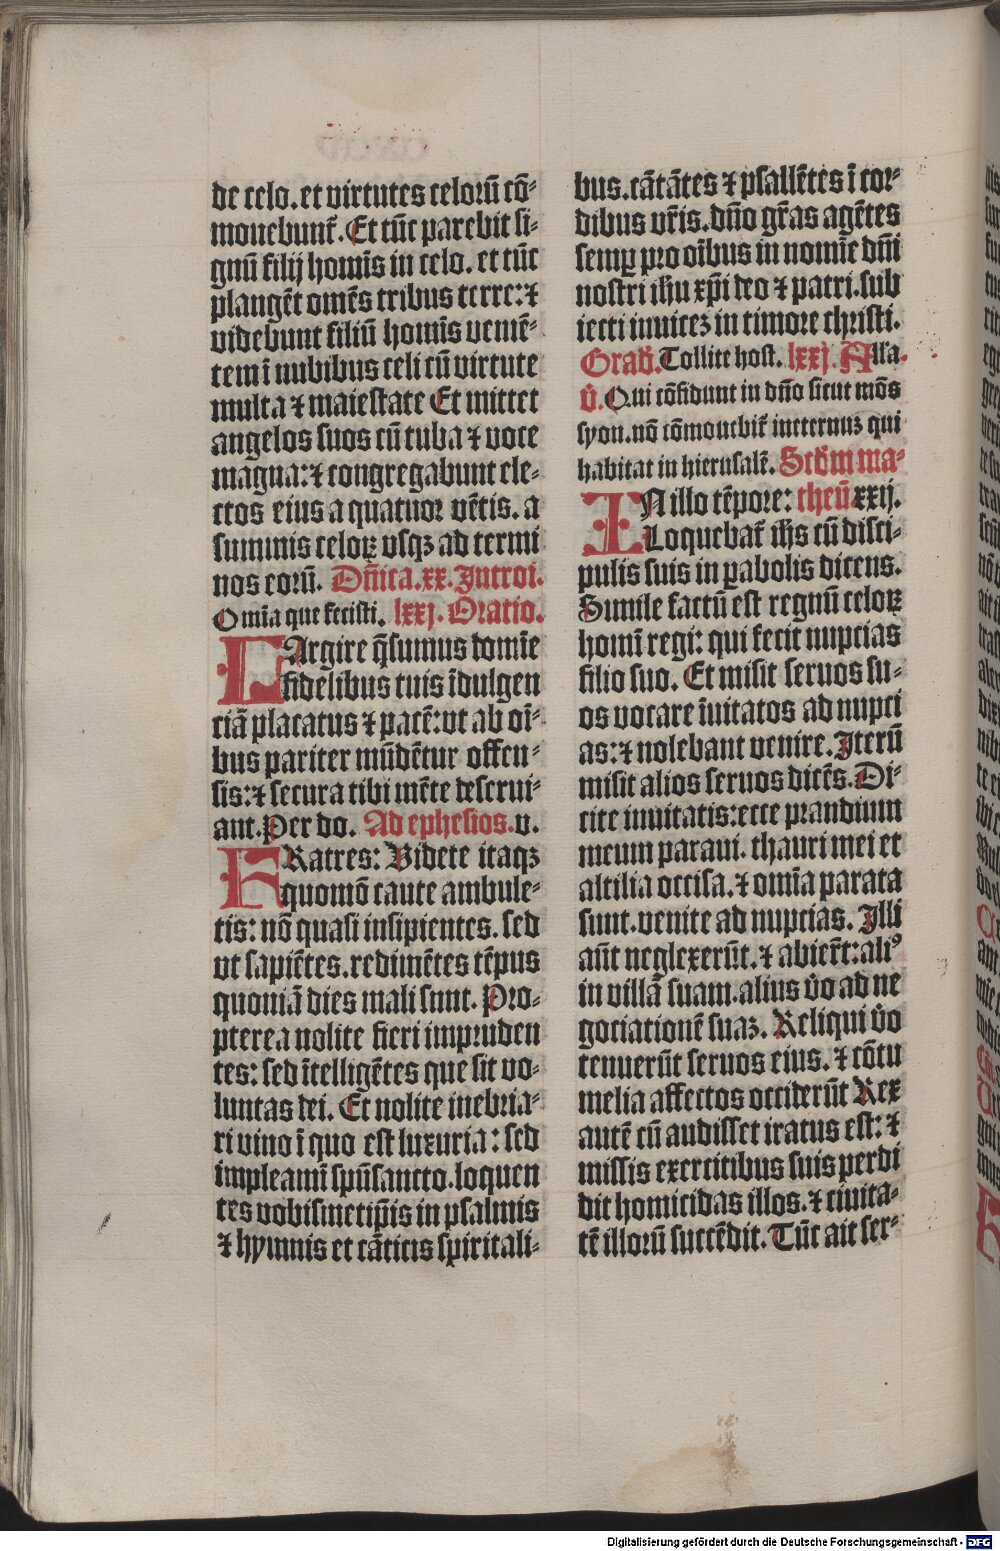 de celo. et virtutes celorū cō-
mouebunt̄. Et tūc parebit si-
gnū filij homīs in celo. et tūc
plangēt omēs tribus terre: ⁊
videbunt filiū homīs venīē-
tem ī nubibus celi cū virtute
multa ⁊ maiestate Et mittet
angelos suos cū tuba ⁊ voce
magna: ⁊ congregabunt ele-
ctos eius a quatuor vētis. a
summis celoꝝ vsqꝫ ad termi
nos eorū. Dn̄ica. xx. Introi.
Omīa que fecisti. lxxj. Oratio.
LArgire q̄sumus domīe
fidelibus tuis īdulgen
ciā placatus ⁊ pacē: vt ab oī-
bus pariter mūdētur offen-
sis: ⁊ secura tibi mēte deserui-
ant. Per do. Ad ephesios. v.
FRatres: Videte itaqꝫ
quomō caute ambule-
tis: nō quasi insipientes. sed
vt sapiētes. redimētes tēpus
quoniā dies mali sunt. Pro-
pterea nolite fieri impruden
tes: sed ītelligētes que sit vo-
luntas dei. Et nolite inebria-
ri vino ī quo est luxuria: sed
impleamī spū sancto. loquen
tes vobismetip̄is in psalmis
⁊ hymnis et cāticis spiritali-
bus. cātātes ⁊ psallētes ī cor-
dibus vr̄is. dn̄o gr̄as agētes
semꝑ pro oībus in nomīe dn̄i
nostri ih̄u xp̄i deo ⁊ patri. sub
iecti inuicez in timore christi.
Grad̄. Tollite host. lxxj. All'a.
v̄. Qui cōfidunt in dn̄o sicut mōs
syon. nō cōmouebit̄ ineternuz qui
habitat in hierusalē. Scd̄m ma-
IN illo tēpore: theū. xxij.
Loquebat̄ ih̄s cū disci-
pulis suis in ꝑabolis dicens.
Simile factū est regnū celoꝝ
homī regi: qui fecit nupcias
filio suo. Et misit seruos su-
os vocare īuitatos ad nupci
as: ⁊ nolebant venire. Iterū
misit alios seruos dicēs. Di-
cite inuitatis: ecce prandium
meum paraui. thauri mei et
altilia occisa. ⁊ omīa parata
sunt. venite ad nupcias. Illi
aūt neglexerūt. ⁊ abierēt: aliꝰ
in villā suam. alius v̄o ad ne
gociationē suaz. Reliqui v̄o
tenuerūt seruos eius. ⁊ cōtu
melia affectos occiderūt Rex
autē cū audisset iratus est: ⁊
missis exercitibus suis perdi
dit homicidas illos. ⁊ ciuita-
tē illorū succēdit. Tūc ait ser-
Digitalisierung gefördert durch die Deutsche Forschungsgemeinschaft - DFG